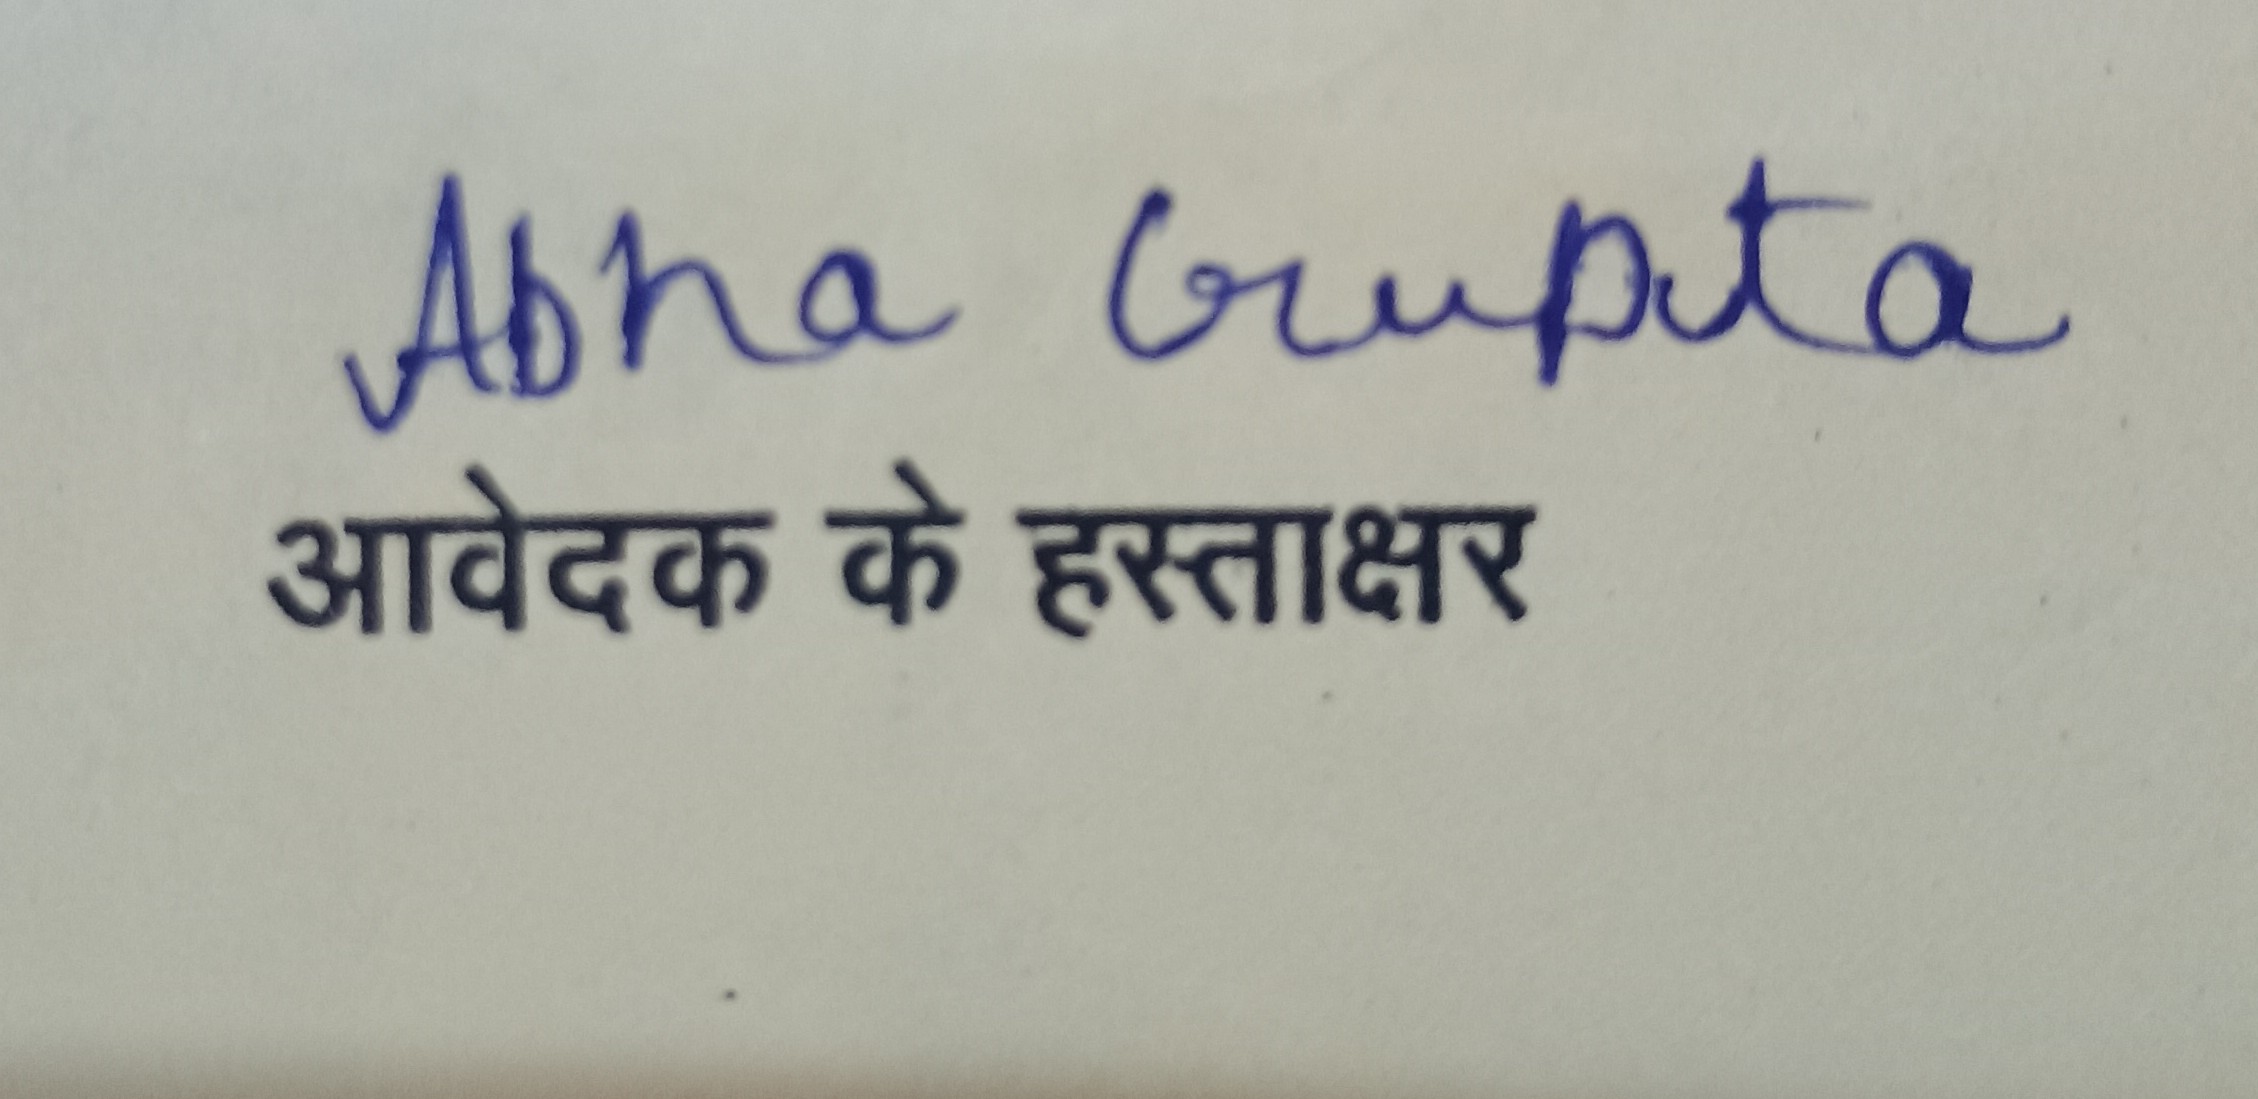 Abha Gupta
आवेदक के हस्ताक्षर